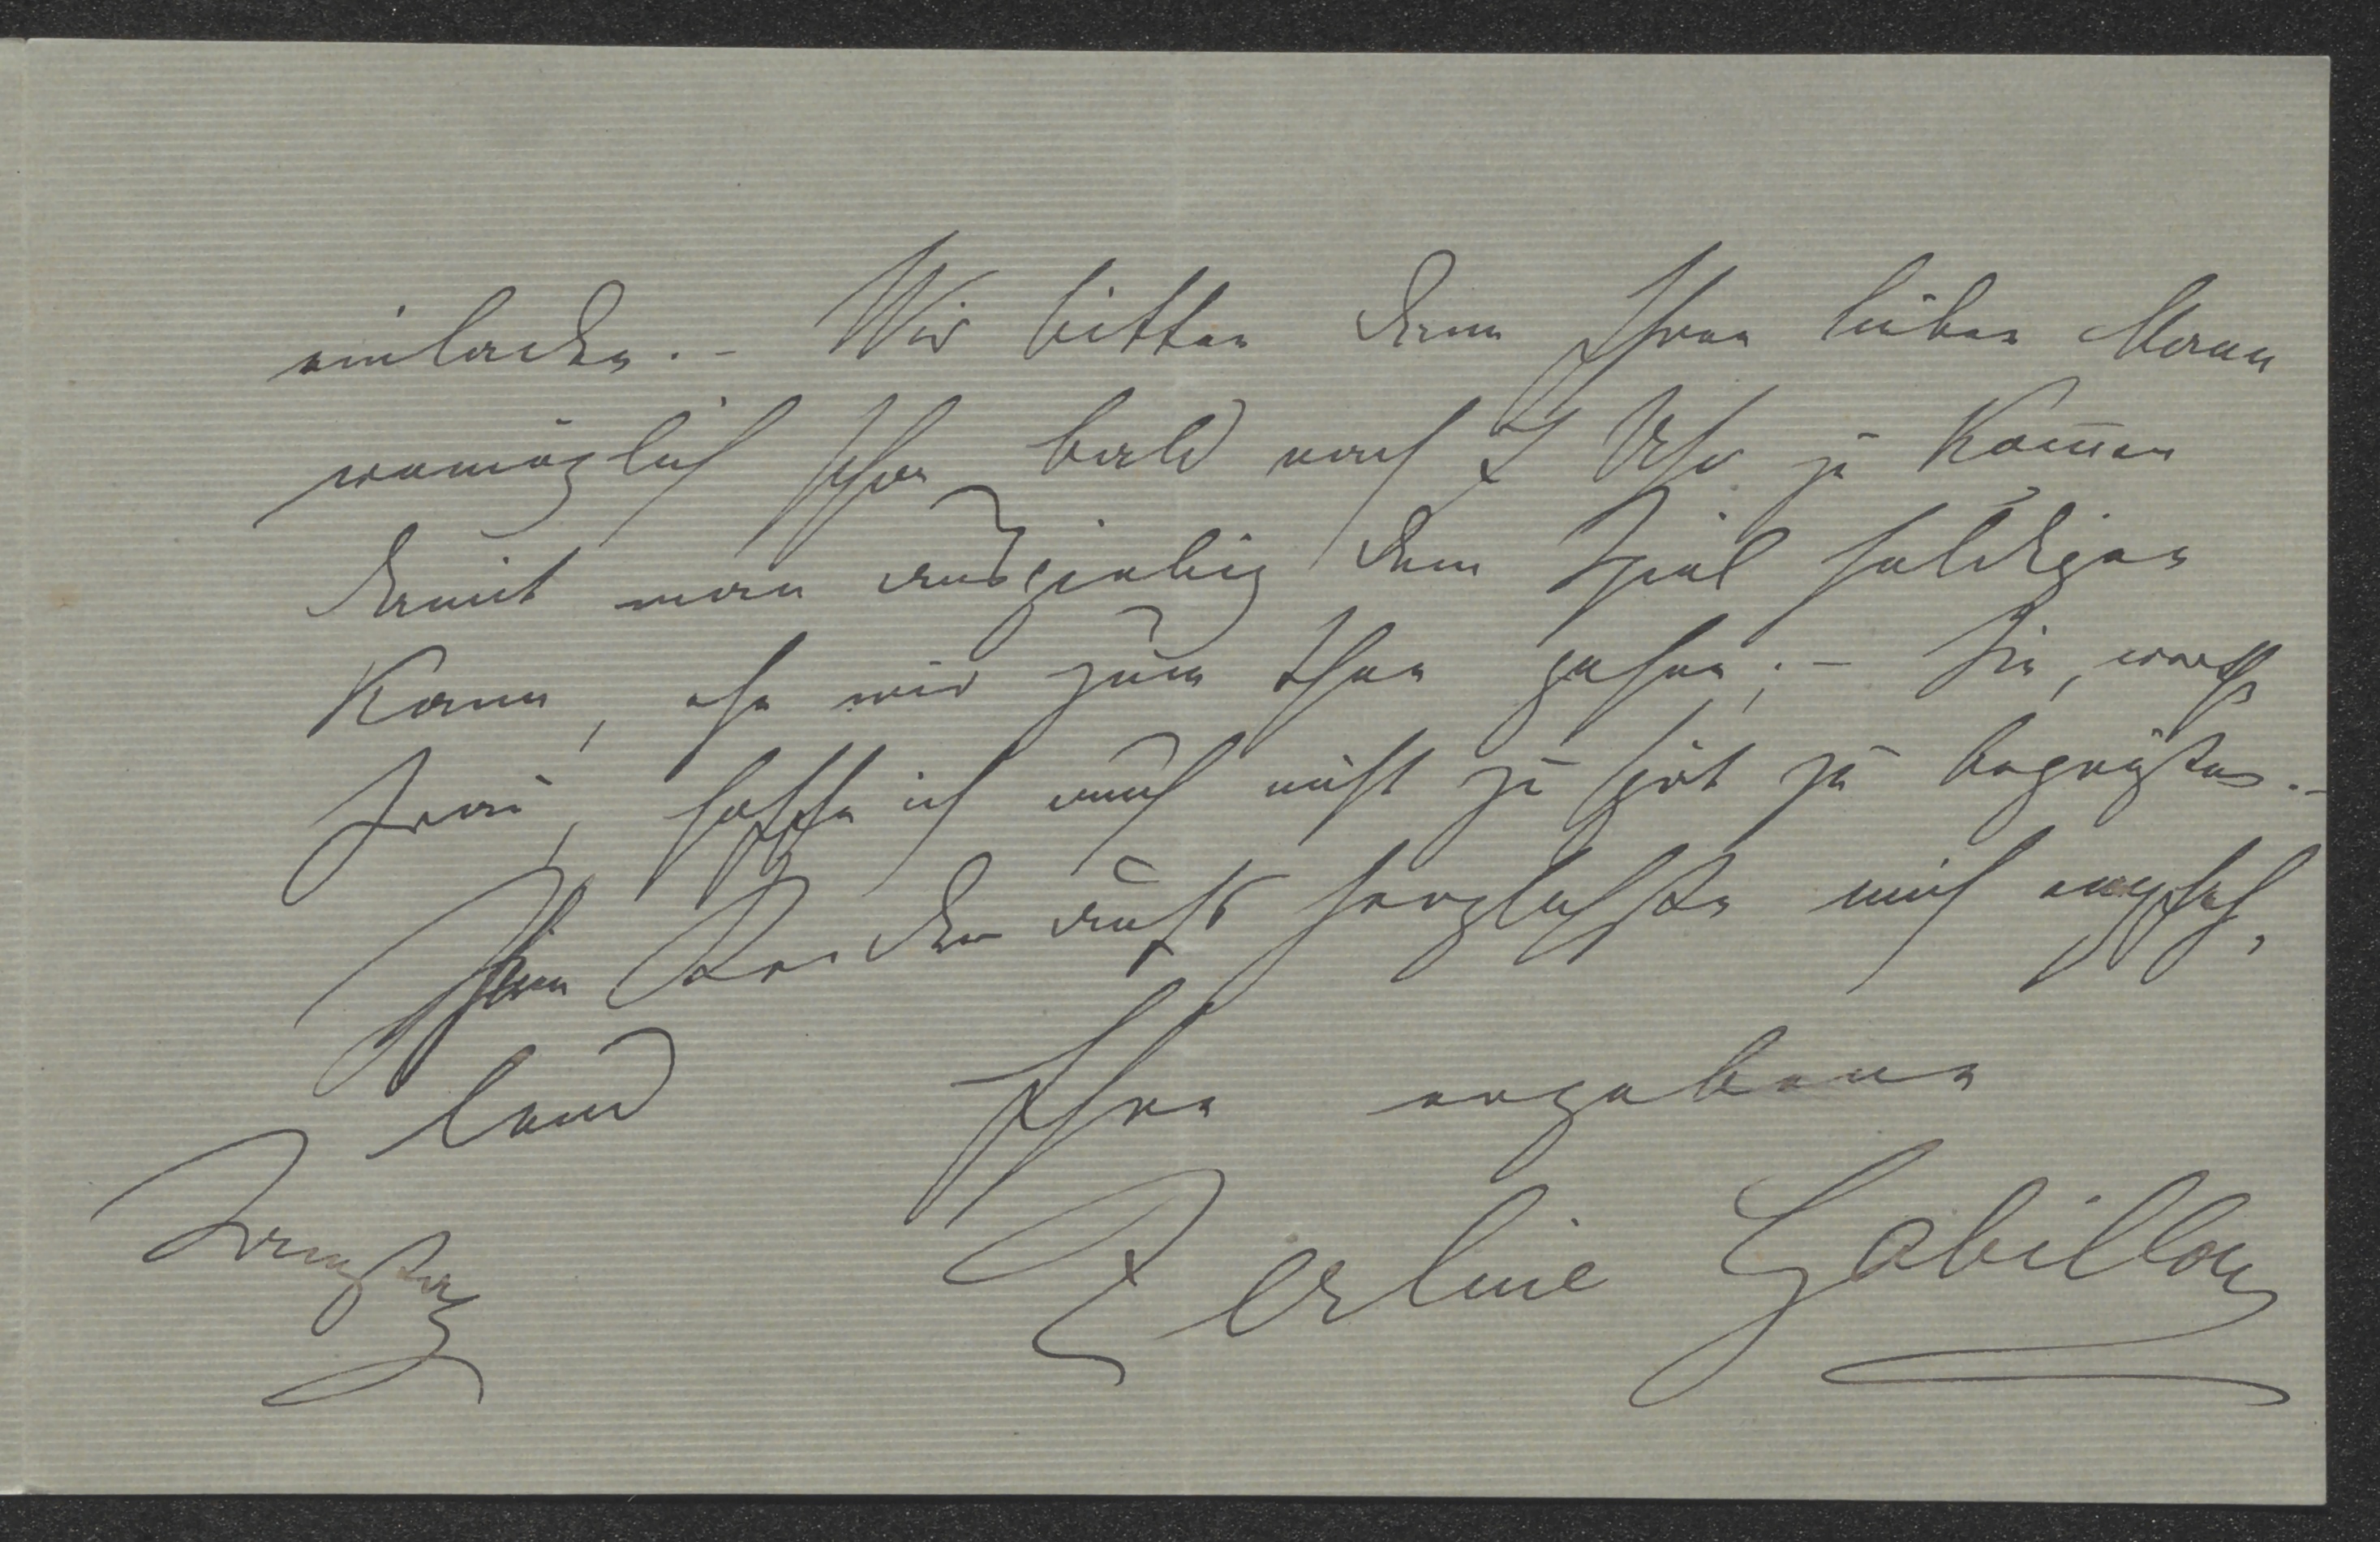 einladen. – Wir bitten dann Ihren lieben Mann
womöglich schon bald nach 7 Uhr zu kom̅en
damit man ausgiebig dem Spiel huldigen
kann, ehe wir zum Thee gehen; – Sie, werthe
Frau, hoffe ich auch nicht zu spät zu begrüßen. –
Ihnen Beiden aufs herzlichste mich empfeh,
lend Ihre ergebene
Zerline Gabillon
Samstag